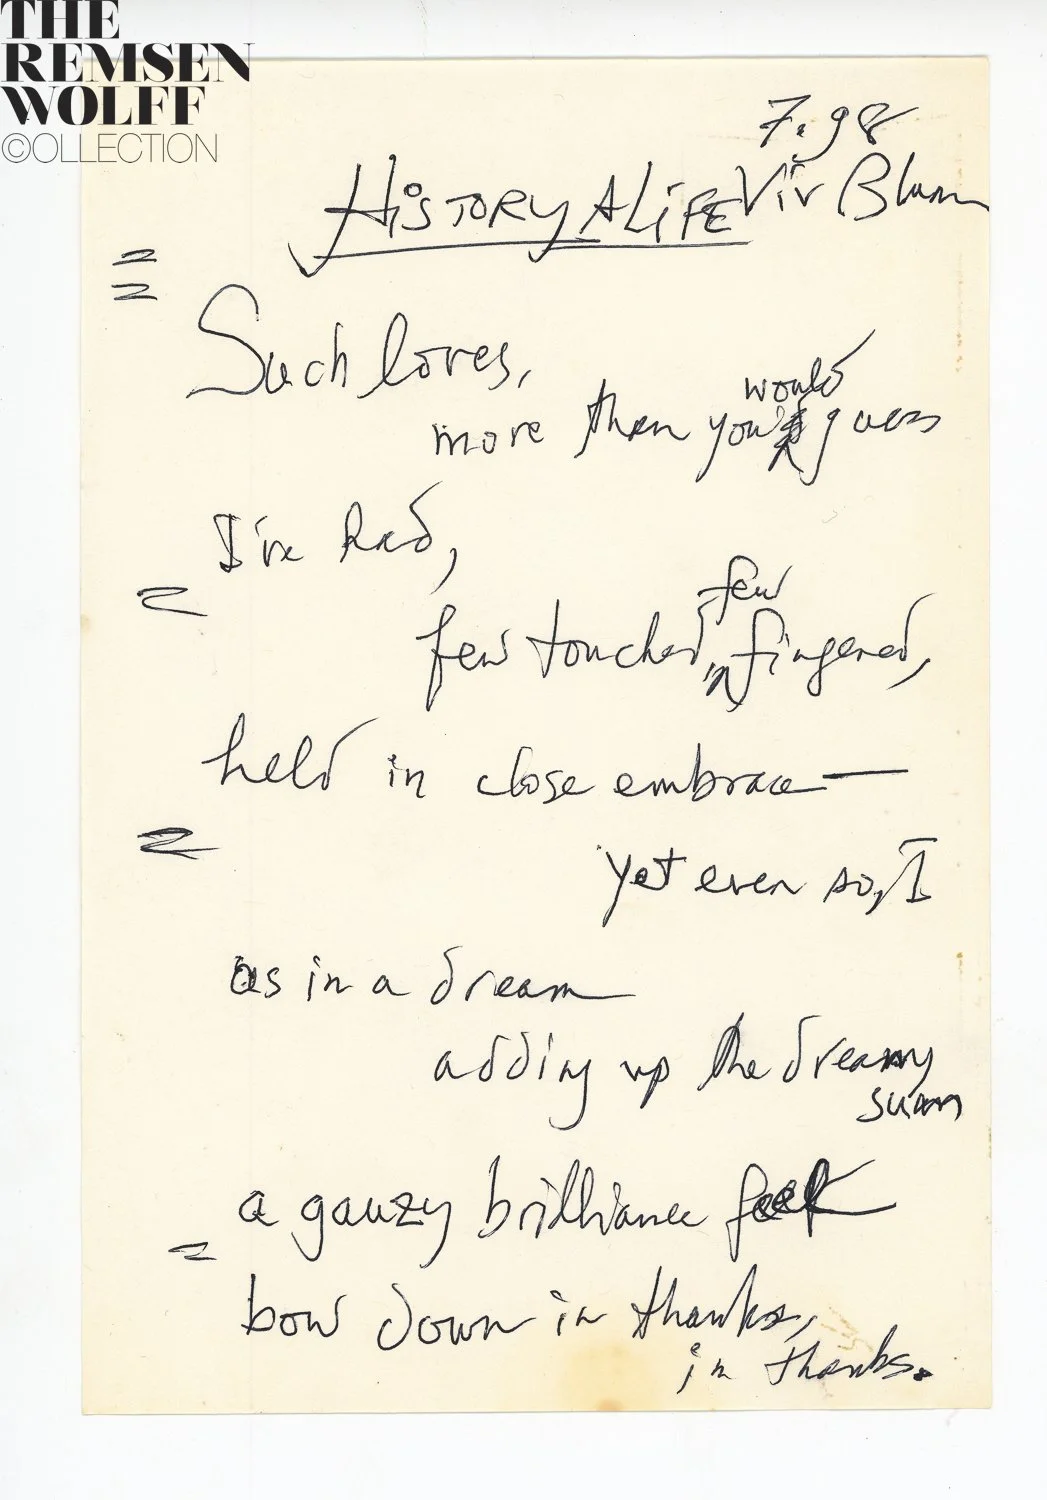 THE
REMSEN
WOLFF
©OLLECTION
7.98
HISTORY A LIFE Viv Blum
Such loves,
would
more than you guess
I've had,
few
few touched, fingered,
held in close embrace—
yet even so, I
as in a dream
adding up the dreamy
sum
a gauzy brilliance
bow down in thanks,
in thanks.